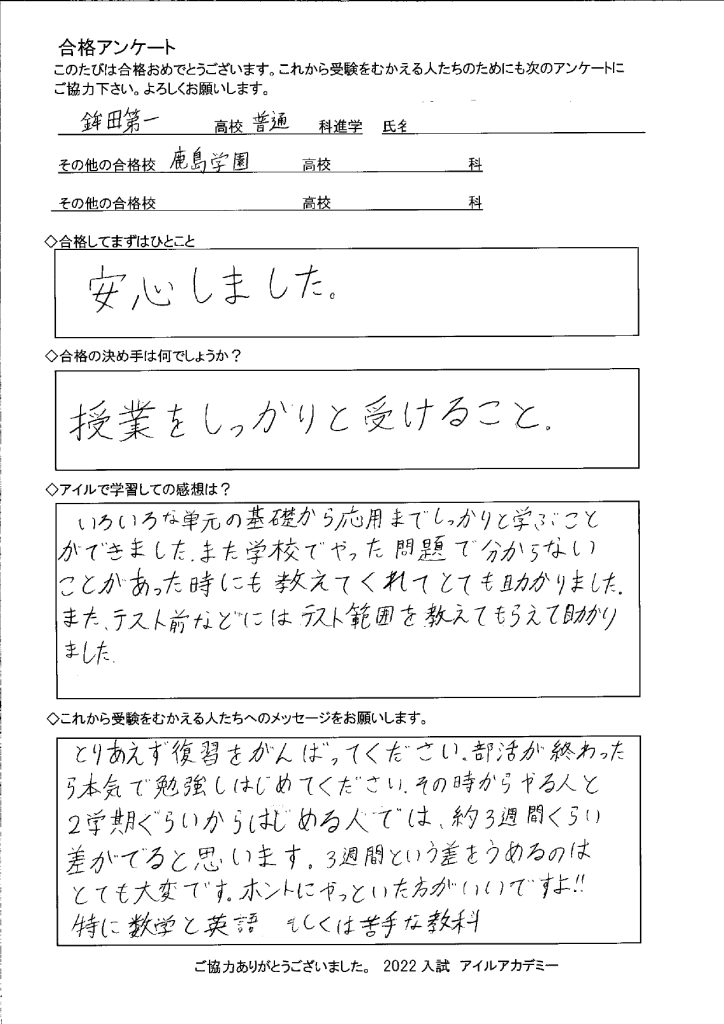 合格アンケート
このたびは合格おめでとうございます。これから受験をむかえる人たちのためにも次のアンケートに
ご協力下さい。よろしくお願いします。
鉾田第一 高校 普通 科進学 氏名
その他の合格校 鹿島学園 高校 科
その他の合格校 高校 科
◇合格してまずはひとこと
安心しました。
◇合格の決め手は何でしょうか?
授業をしっかりと受けること.
◇アイルで学習しての感想は?
いろいろな単元の基礎から応用までしっかりと学ぶこと
ができました.また学校でやった問題で分からない
ことがあった時にも教えてくれてとても助かりました.
また、テスト前などにはテスト範囲を教えてもらえて助かり
ました.
◇これから受験をむかえる人たちへのメッセージをお願いします。
とりあえず復習をがんばってください.部活が終わった
ら本気で勉強しはじめてください.その時からやる人と
2学期ぐらいからはじめる人では、約3週間くらい
差がでると思います。3週間という差をうめるのは
とても大変です。ホントにやっといた方がいいですよ!!
特に数学と英語 もしくは苦手な教科
ご協力ありがとうございました。 2022入試 アイルアカデミー